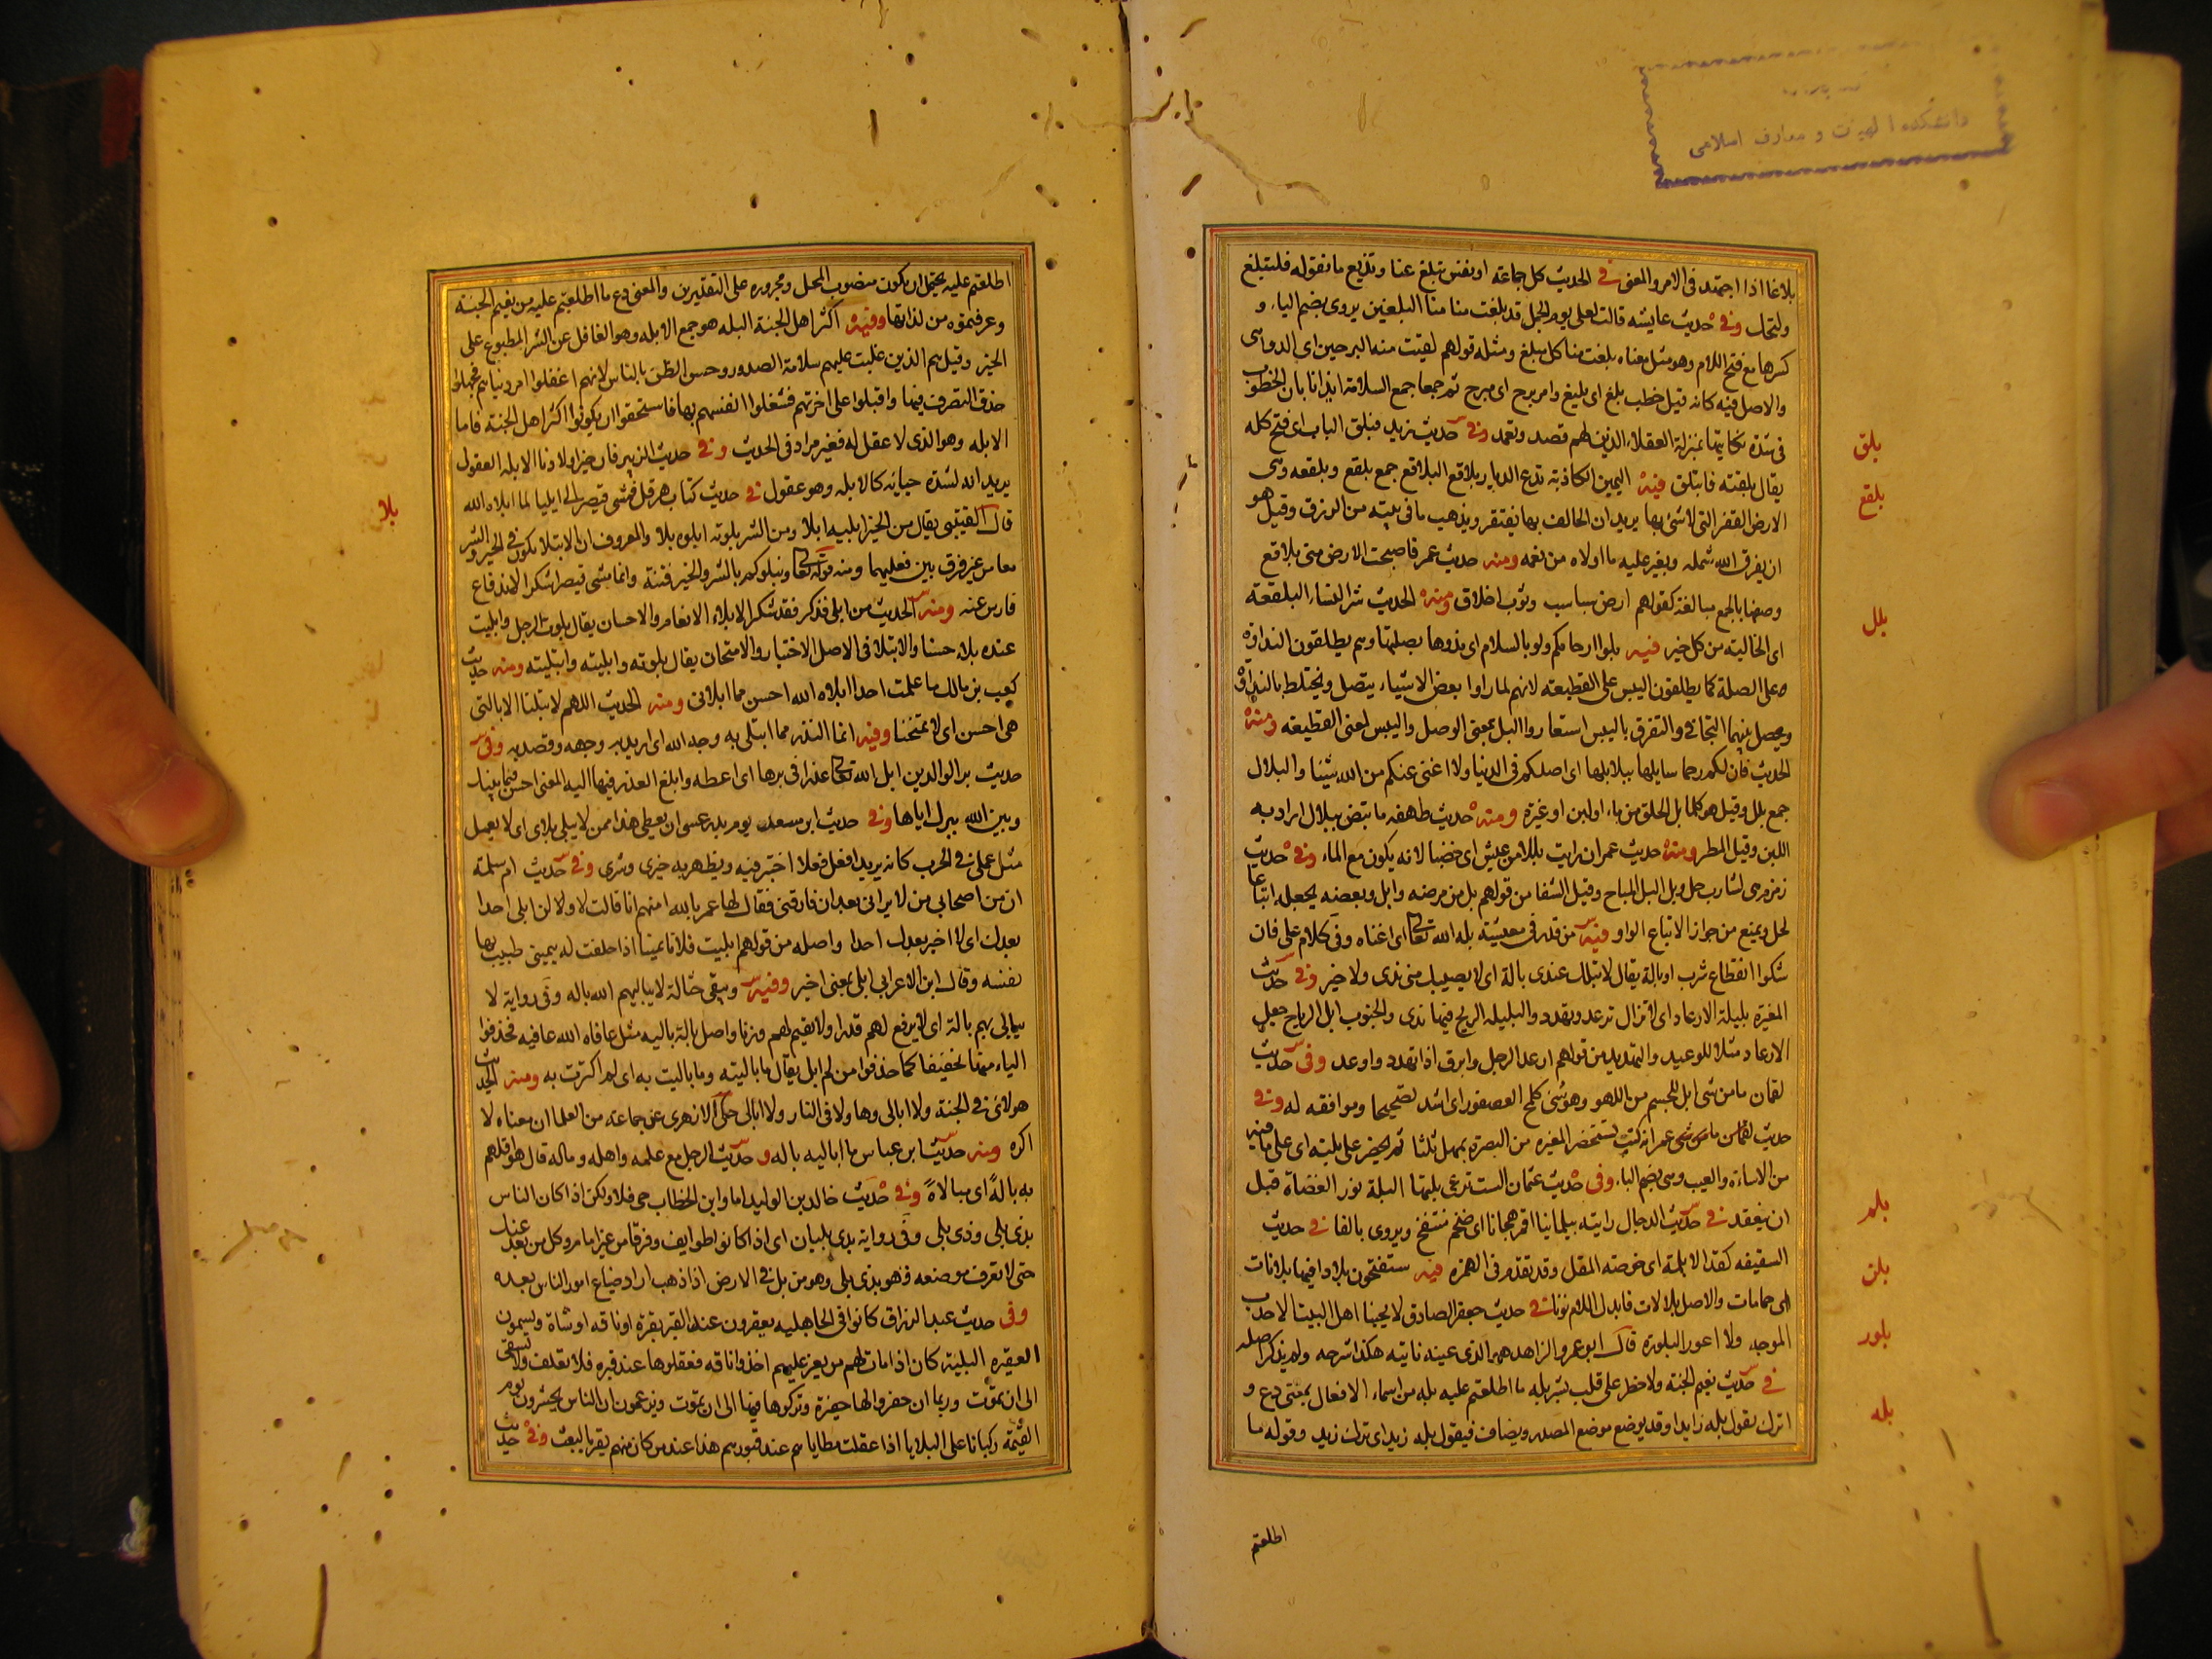 دانشکده الهیات و معارف اسلامی
بلاغا اذا اجتهد فی الامر والمعنی فی الحدیث کل جماعة او نفس تبلغ عنا وتذیع ما نقوله فلتبلغ
ولتحک وفی حدیث عایشه قالت لعلی یوم الجمل قد بلغت منا البلغین یروی بضم الباء و
کسرها مع فتح اللام وهو مثل معناه بلغت منا کل مبلغ ومثله قولهم لقیت منه البرحین ای الدواهی
والاصل فیه کانه قیل خطب بلغ ای بلیغ وامر برح ای مبرح ثم جمعا جمع السلامة ایذانا بان الخطوب
فی شدة نکایتها بمنزلة العقلاء الذین لهم قصد وتعمد وفی حدیث زید فبلق الباب ای فتح کله
بلق
یقال بلقته فانبلق فیه الیمین الکاذبة تدع الدیار بلاقع البلاقع جمع بلقع وبلقعه وهی
بلقع
الارض القفر التی لا شئ بها یرید ان الحالف بها یفتقر ویذهب ما فی بیته من الرزق وقیل هو
ان یفرق الله شمله ویغیر علیه ما اولاه من نعمه ومنه حدیث عمر فاصبحت الارض منی بلاقع
وصفها بالجمع مبالغة کقولهم ارض سباسب وثوب اخلاق ومنه الحدیث شر النساء البلقعة
ای الخالیة من کل خیر فیه بلوا ارحامکم ولو بالسلام ای ندوها بصلتها وهم یطلقون النداوة
بلل
علی الصلة کما یطلقون الیبس علی القطیعة لانهم لما راوا بعض الاشیاء یتصل ویختلط بالنداوة
ویحصل بینهما التجافی والتفرق بالیبس استعاروا البل بمعنی الوصل والیبس لمعنی القطیعة ومنه
الحدیث فان لکم رحما سابلها ببلالها ای اصلکم فی الدنیا ولا اغنی عنکم من الله شیئا والبلال
جمع بلل وقیل هو کلما بل الحلق من ماء او لبن او غیره ومنه حدیث طهفه ما تبض ببلال اراد به
اللبن وقیل المطر ومنه حدیث عمر ان رایت بللا من عیش ای خصبا لانه یکون مع الماء وفی حدیث
زمزم هی لشارب حل وبل البل المباح وقیل الشفا من قولهم بل من مرضه وابل وبعضه یجعله اتباعا
لحل ویمنع من جواز الاتباع الواو فیه من قدر فی معیشته بله الله تعا ای اغناه وفی کلام علی فان
شکوا انقطاع شرب او بالة یقال لا تبلک عندی بالة ای لا یصیبک منی ندی ولا خیر وفی حدیث
المغیره بلیلة الارعاد ای لا تزال ترعد وتهدد والبلیله الریح فیها ندی والجنوب ابل الریاح جعل
الارعاد مثلا للوعید والتهدید من قولهم ارعد الرجل وابرق اذا تهدد واوعد وفی حدیث
لقمان ما من شی ابل للجسم من اللهو وهو شئ کلحم العصفور ای اشد تصحیحا وموافقة له وفی
من الاساءة والعیب وهی بضم الباء وفی حدیث عثمان الست ترعی بلتها البلة نور العضاة قبل
ان ینعقد فی حدیث الدجال رایته بیلمانیا اقمر هجانا ای ضخم منتفخ ویروی بالفا فی حدیث
بلم
السقیفه کقد الابلمة ای خوصة المقل وقد تقدم فی الهمزه فیه ستفتحون بلادا فیها بلانات
بلن
ای حمامات والاصل بلالات فابدل اللام نونا فی حدیث جعفر الصادق لا یحبنا اهل البیت الاحدب
الموجه ولا اعور البلورة قال ابو عمرو الزاهد هو الذی عینه ناتیه هکذا شرحه ولم یذکر اصله
بلور
فی حدیث نعیم الجنة ولا خطر علی قلب بشر بله ما اطلعتم علیه بله من اسماء الافعال بمعنی دع و
بله
اترک تقول بله زیدا وقد یوضع موضع المصدر ویضاف فیقول بله زید ای ترک زید وقوله ما
اطلعتم
اطلعتم علیه یحتمل ان یکون منصوب المحل ومجروره علی التقدیرین والمعنی دع ما اطلعتم علیه من نعیم الجنة
وعرفتموه من لذاتها وفیه اکثر اهل الجنة البله هو جمع الابله وهو الغافل عن الشر المطبوع علی
الخیر وقیل هم الذین غلبت علیهم سلامة الصدور وحسن الظن بالناس لانهم اغفلوا امر دنیاهم فجهلوا
حذق التصرف فیها واقبلوا علی اخرتهم فشغلوا انفسهم بها فاستحقوا ان یکونوا اکثر اهل الجنة فاما
الابله وهو الذی لا عقل له فغیر مراد فی الحدیث وفی حدیث الزبیر قان خیر اولادنا الابله العقول
یرید انه لشدة حیائه کالابله وهو عقول فی حدیث کتاب هرقل فمشی قیصر الی ایلیا لما ابلاه الله
بلا
قال القتیبی یقال من الخیر ابلیته ابلا ومن الشر بلوته ابلوه بلا والمعروف ان الابتلا یکون فی الخیر والشر
معا من غیر فرق بین فعلیهما ومنه قوله تعا ونبلوکم بالشر والخیر فتنة وانما مشی قیصر شکرا لاندفاع
فارس عنه ومنه الحدیث من ابلی فذکر فقد شکر الابلاء الانعام والاحسان یقال بلوت الرجل وابلیت
عنده بلاء حسنا والابتلا فی الاصل الاختبار والامتحان یقال بلوته وابلیته وابتلیته ومنه حدیث
کعب بن مالک ما علمت احدا ابلاه الله احسن مما ابلانی ومنه الحدیث اللهم لا تبلنا الا بالتی
هی احسن ای لا تمتحنا وفیه انما النذر مما ابتلی به وجه الله ای ارید به وجهه وقصد به وفی
حدیث بر الوالدین ابل الله تعا عذرا فی برها ای اعطه وابلغ العذر فیها الیه المعنی احسن فیما بینک
وبین الله ببرک ایاها وفی حدیث ابن مسعد یوم بدر عسی ان یعطی هذا من لا یبلی بلای ای لا یعمل
مثل عملی فی الحرب کانه یرید افعل فعلا اختبر فیه ویظهر به خیری وشری وفی حدیث ام سلمة
ان من اصحابی من لا یرانی بعد ان فارقنی فقال لها عمر بالله امنهم انا قالت لا ولا لن ابلی احدا
بعدک ای لا اخبر بعدک احدا واصله من قولهم ابلیت فلانا یمینا اذا حلفت له بیمین طیبت بها
نفسه وقال ابن الاعرابی ابلی بمعنی اخبر وفیه وتبقی حثالة لا یبالیهم الله باله وفی روایة لا
یبالی بهم بالة ای لا یرفع لهم قدرا ولا یقیم لهم وزنا واصل بالة بالیه مثل عافاه الله عافیه فحذفوا
الیاء منها تخفیفا کما حذفوا من لم ابل یقال ما بالیته وما بالیت به ای لم اکترث به ومنه الحدیث
هولاء فی الجنة ولا ابالی وهاولا فی النار ولا ابالی حکی الازهری عن جماعة من العلما ان معناه لا
اکره ومنه حدیث ابن عباس ما ابالیه باله و حدیث الرجل مع علمه واهله وماله قال هو اقلهم
به بالة ای مبالاة وفی حدیث خالد بن الولید اما وابن الخطاب حی فلا ولکن اذا کان الناس
بذی بلی وذی بلی وفی روایة بذی بلیان ای اذا کانوا طوایف وفرقا من غیر امام وکل من بعد عنک
حتی لا تعرف موضعه فهو بذی بلی وهو من بل فی الارض اذا ذهب اراد ضیاع امور الناس بعده
وفی حدیث عبد الرزاق کانوا فی الجاهلیه یعقرون عند القبر بقرة او ناقه او شاة ویسمون
العقیره البلیة کان اذا مات لهم من یعز علیهم اخذوا ناقه فعقلوها عند قبره فلا تعلف ولا تسقی
الی ان تموت وربما ان حفروا لها حفیرة وترکوها فیها الی ان تموت ویزعمون ان الناس یحشرون یوم
القیمة رکبانا علی البلایا اذا عقلت مطایاهم عند قبورهم هذا عند من کان منهم یقر بالبعث وفی حدیث